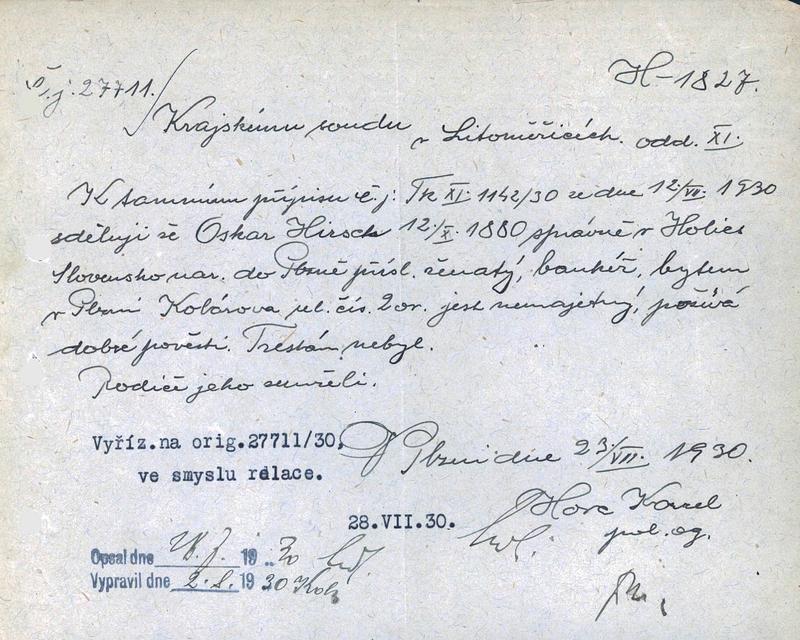 Č.j. 27711.
H-1827.
Krajskému soudu v Litoměřicích. odd. XI.
K tamnímu přípisu č.j: Tk XI. 1142/30 ze dne 12./VII. 1930
sděluji že Oskar Hirsch 12./X. 1880 správně v Holíči
Slovensko nar. do Plzně přísl. ženatý, bankéř, bytem
v Plzni Kolárova ul. čís. 2 or. jest nemajetný, požívá
dobré pověsti. Trestán nebyl.
Rodiče jeho zemřeli.
Vyříz.na orig.27711/30,
ve smyslu relace.
V Plzni dne 23./VII. 1930.
Hora Karel
pol. ag.
28.VII.30.
Opsal dne 28.7. 19 30
Vypravil dne 2.8. 19 30